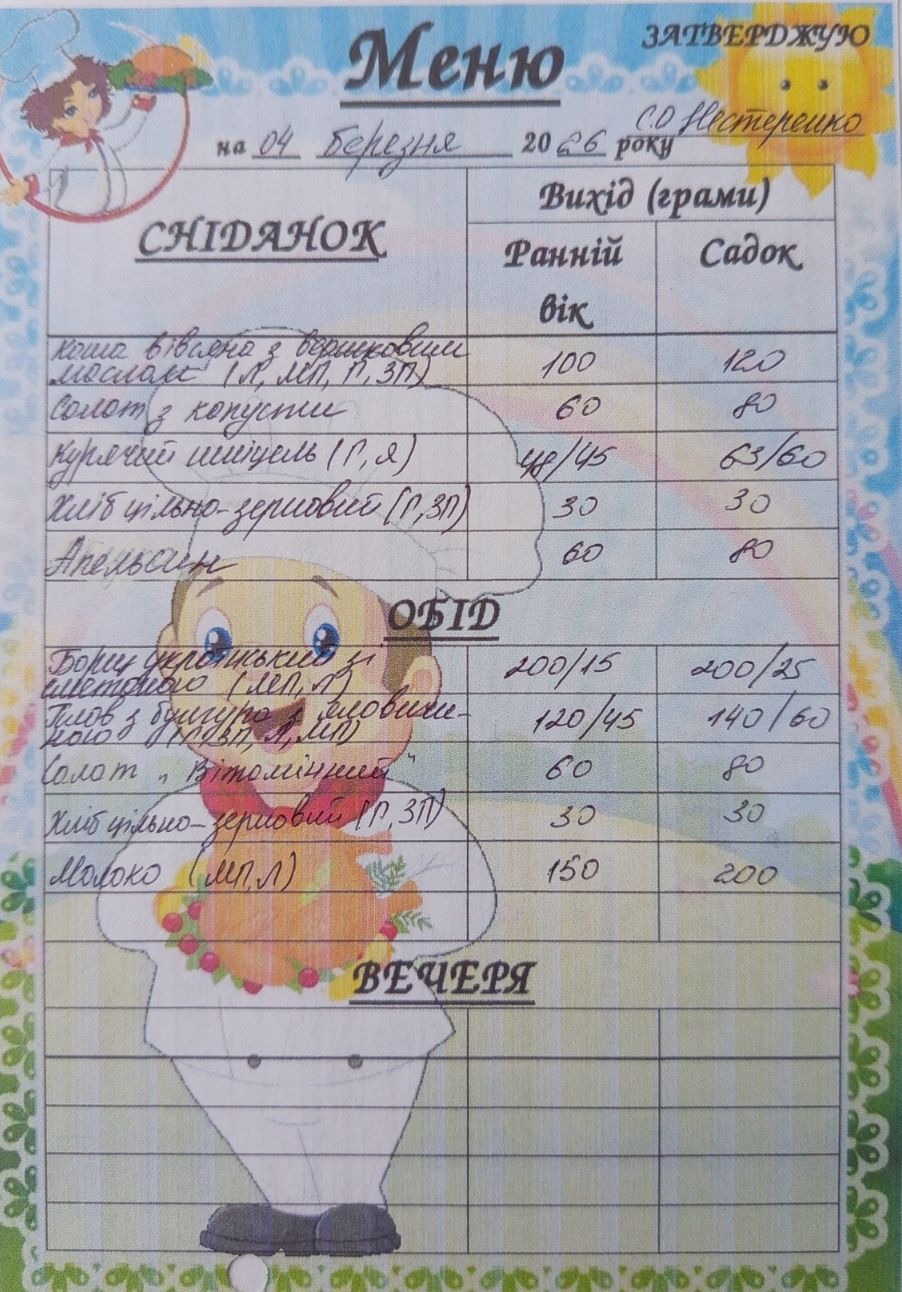 Меню
ЗАТВЕРДЖУЮ
С.О Нестеренко
на 04 березня 2026 року
СНІДАНОК
Вихід (грами)
Ранній вік
Садок
Каша вівсяна з вершковим
маслом (Л, МП, Г, ЗП) 100 120
Салат з капусти 60 80
Курячий шніцель (Г, Я) 48/45 63/60
Хліб цільно-зерновий (Г, ЗП) 30 30
Апельсин 60 80
ОБІД
Борщ український зі
сметаною (МП, Л) 200/15 200/25
Плов з булгура з яловичи-
ною (Г, ЗП, Л, МП) 120/45 140/60
Салат „Вітамінний" 60 80
Хліб цільно-зерновий (Г, ЗП) 30 30
Молоко (МП, Л) 150 200
ВЕЧЕРЯ